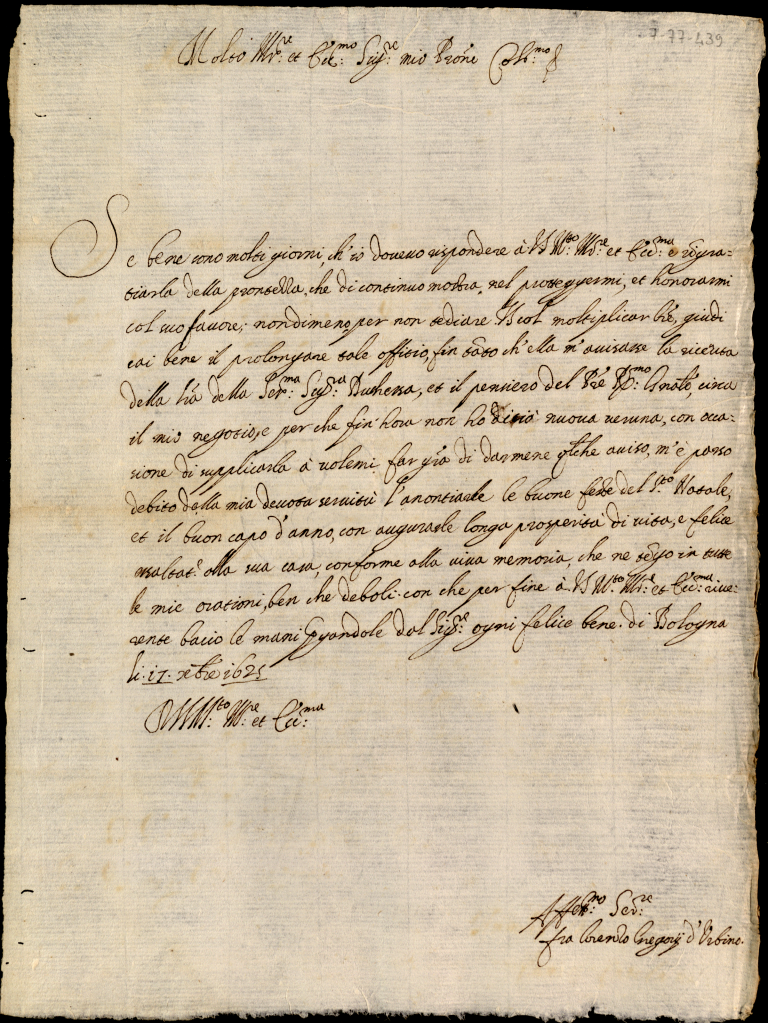 7-77-439
Molto Ill.re et Ecc.mo Sig.re mio Prōne Col.mo
Se bene sono molti giorni, ch'io dovevo rispondere à VS M.to Ill.re et Ecc.ma e rīgra-
tiarla della prontezza, che di continuo mostra, nel proteggermi, et honorarmi
col suo favore; nondimeno per non tediare VS col moltiplicar lr̄e, giudi
cai bene il prolongare tale offitio, fin tāto ch'ella m'avisasse la ricevuta
della lr̄a della Ser.ma Sig.ra Duchessa, et il pensiero del Pr̄e R.mo Gn̄ale, circa
il mio negotio, e per che fin'hora non ho nuova veruna, con occa-
sione di supplicarla à volermi far gr̄a di darmene qlche aviso, m'è parso
debito della mia devota servitù l'anontiarle le buone feste del S.to Natale,
et il buon capo d'anno, con augurarle longa prosperità di vita, e felice
esaltat.e alla sua casa, conforme alla viva memoria, che ne tēgo in tutte
le mie orationi, ben che deboli. con che per fine à VS M.to Ill.re et Ecc.ma rive-
rente bacio le mani pgandole dal Sig.re ogni felice bene. di Bologna
li. 17. xbr̄e 1625
D VS M.to Ill.re et Ecc.ma
Affett.mo Ser.re
fra Lorenzo Gregorij d'Urbino.